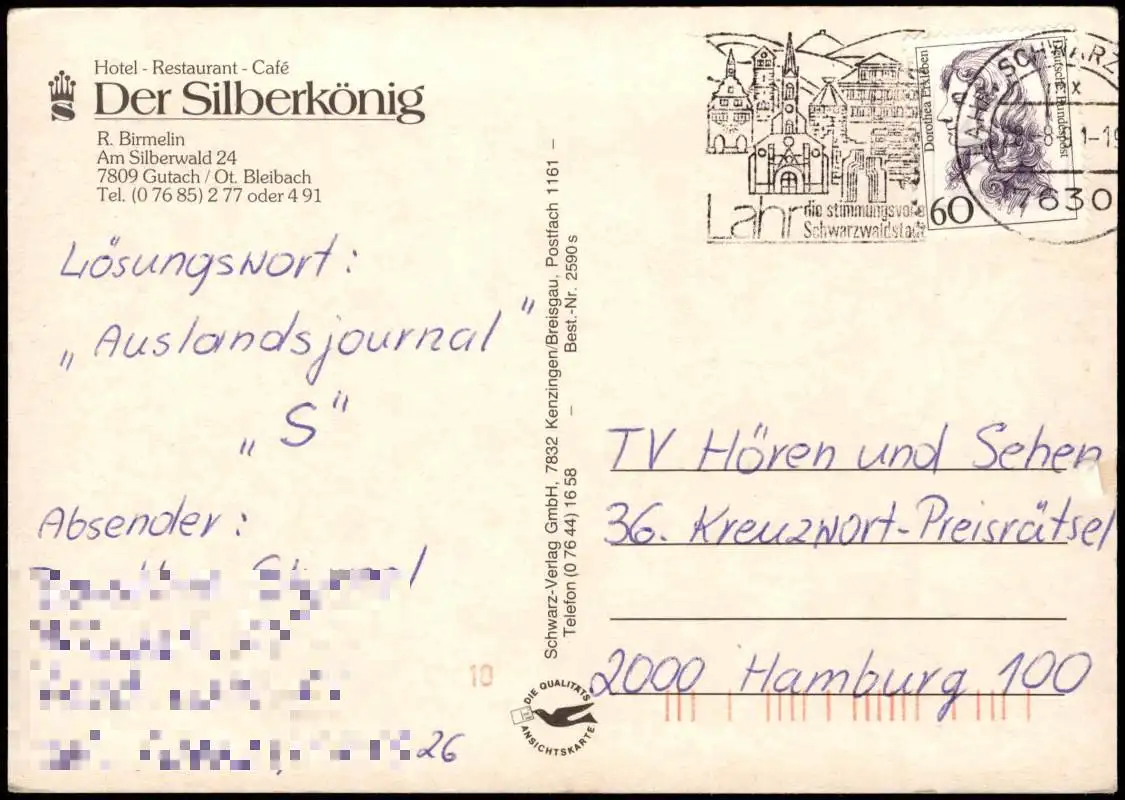 Hotel - Restaurant - Café
Der Silberkönig
S
R. Birmelin
Am Silberwald 24
7809 Gutach / Ot. Bleibach
Tel. (0 76 85) 2 77 oder 4 91
Lösungswort:
„Auslandsjournal"
„S"
Absender:
26
10
Schwarz-Verlag GmbH, 7832 Kenzingen/Breisgau, Postfach 1161 –
Telefon (0 76 44) 16 58 – Best.-Nr. 2590 s
DIE QUALITÄTS
ANSICHTSKARTE
Lahr die stimmungsvolle
Schwarzwaldstadt
Dorothea Erxleben
Deutsche Bundespost
60
LAHR, SCHWARZ
7630
TV Hören und Sehen
36. Kreuzwort-Preisrätsel
2000 Hamburg 100